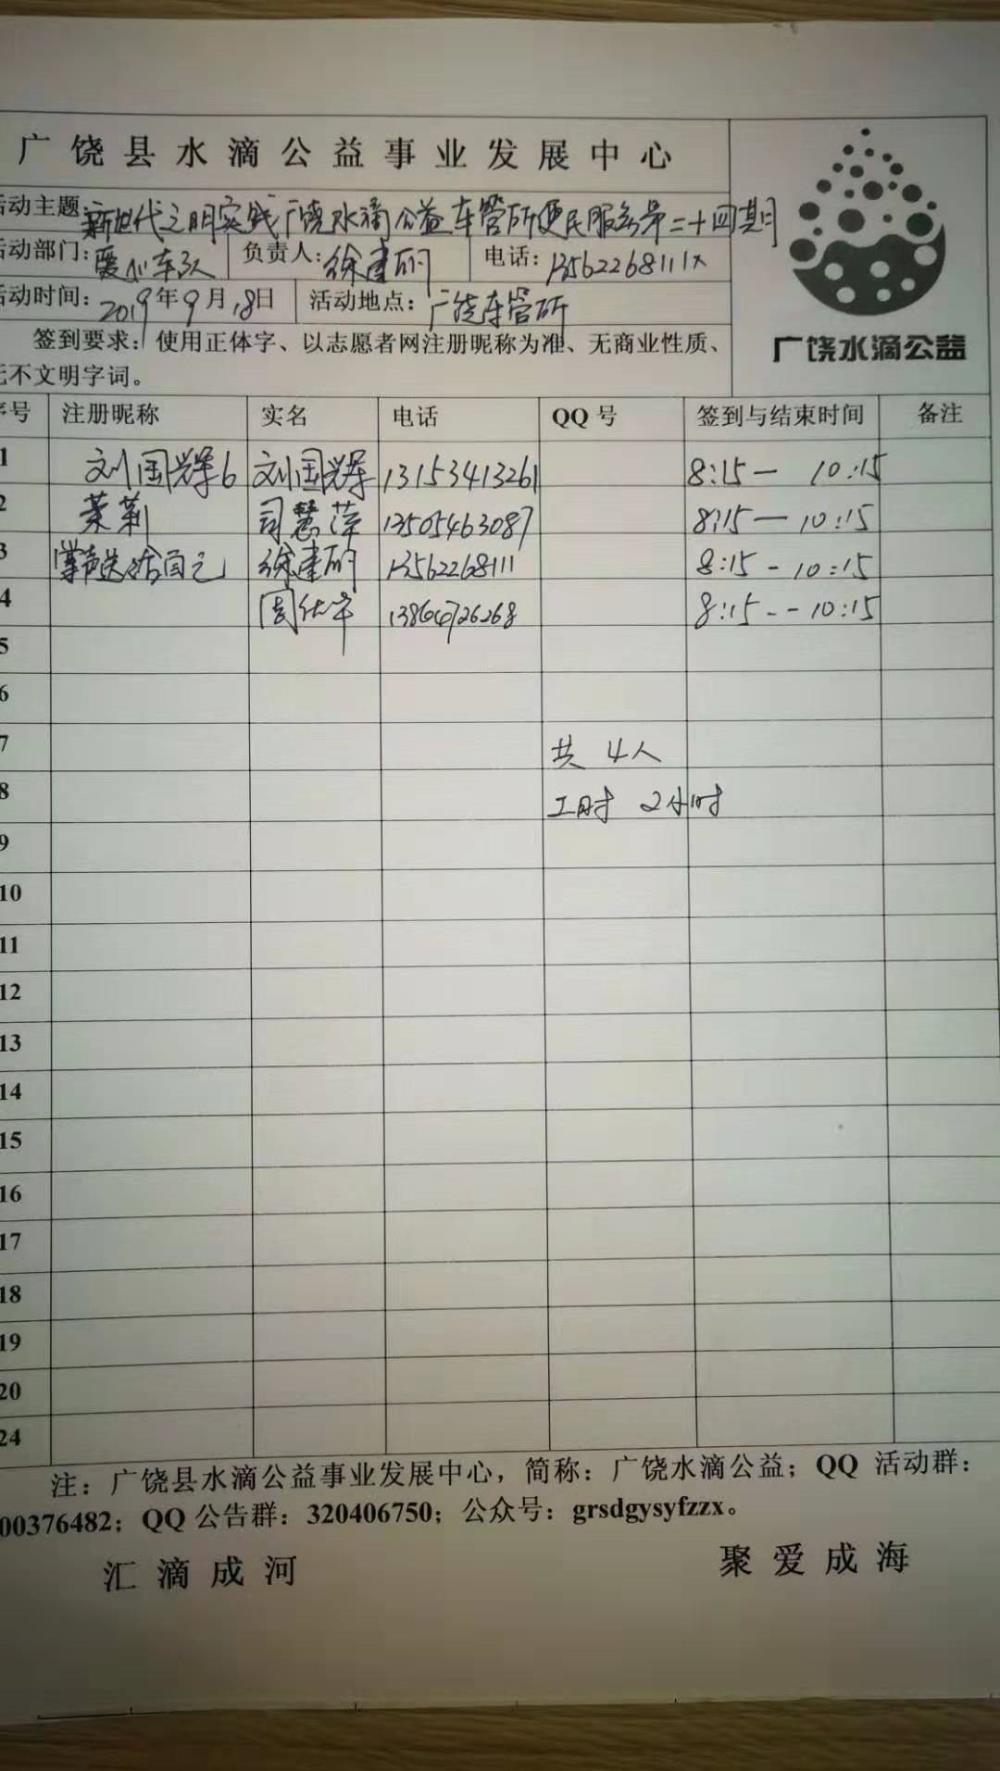 广饶县水滴公益事业发展中心
活动主题:新时代文明实践广饶水滴公益车管所便民服务第二十四期
活动部门:暖心车队 负责人:徐建丽 电话:13562268111
活动时间:2019年9月18日 活动地点:广饶车管所
签到要求:使用正体字、以志愿者网注册昵称为准、无商业性质、
无不文明字词。
广饶水滴公益
序号 注册昵称 实名 电话 QQ 号 签到与结束时间 备注
1 刘国辉6 刘国辉 13153413261 8:15— 10:15
2 茉莉 司慧萍 13505463087 8:15—10:15
3 掌声送给自己 徐建丽 13562268111 8:15-10:15
4 13864726268 8:15--10:15
5
6
7 共 4人
8 工时 2小时
9
10
11
12
13
14
15
16
17
18
19
20
24
注:广饶县水滴公益事业发展中心,简称:广饶水滴公益;QQ 活动群:
00376482;QQ 公告群:320406750;公众号:grsdgysyfzzx。
汇滴成河 聚爱成海